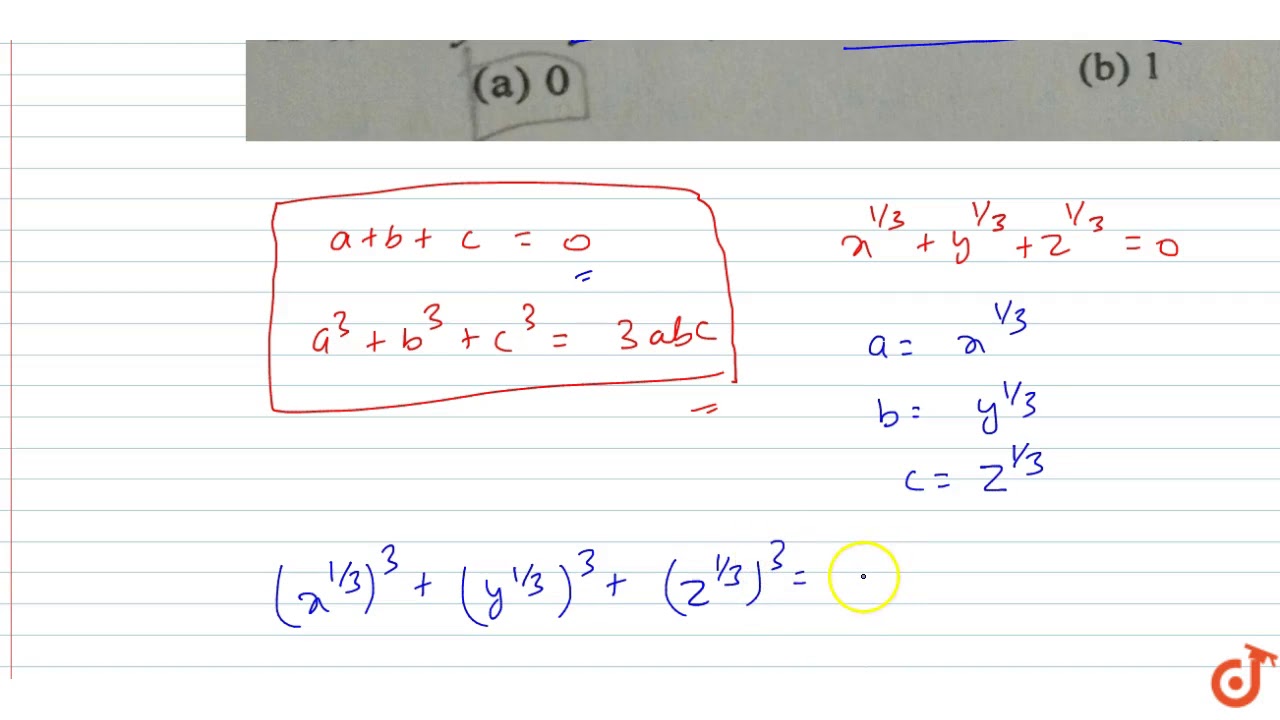 (a) 0 (b) 1
a + b + c = 0
x^{1/3} + y^{1/3} + z^{1/3} = 0
a³ + b³ + c³ = 3abc
a = x^{1/3}
b = y^{1/3}
c = z^{1/3}
(x^{1/3})³ + (y^{1/3})³ + (z^{1/3})³ =